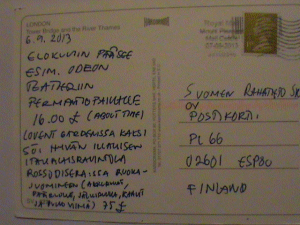 LONDON
Tower Bridge and the River Thames
6.9.2013
ELOKUVIIN PÄÄSEE
ESIM. ODEON
TEATTERIIN
PERMANTOPAIKALLE
16.00 £ (ABOUT TIME)
COVENT GARDENISSA KAKSI
SÖI HYVÄN ILLALLISEN
ITALIALAISRAVINTOLA
ROSSODISERASSA RUOKA-
JUOMINEEN (ALKURUOAT,
PÄÄRUOKA, JÄLKIRUOKA, KAHVIT
JA PULLO VIINIÄ) 75 £
Royal Mail
07-09-2013
SUOMEN RAHATIETO
ON
POSTIKORTTI
PL 66
02601 ESPOO
FINLAND